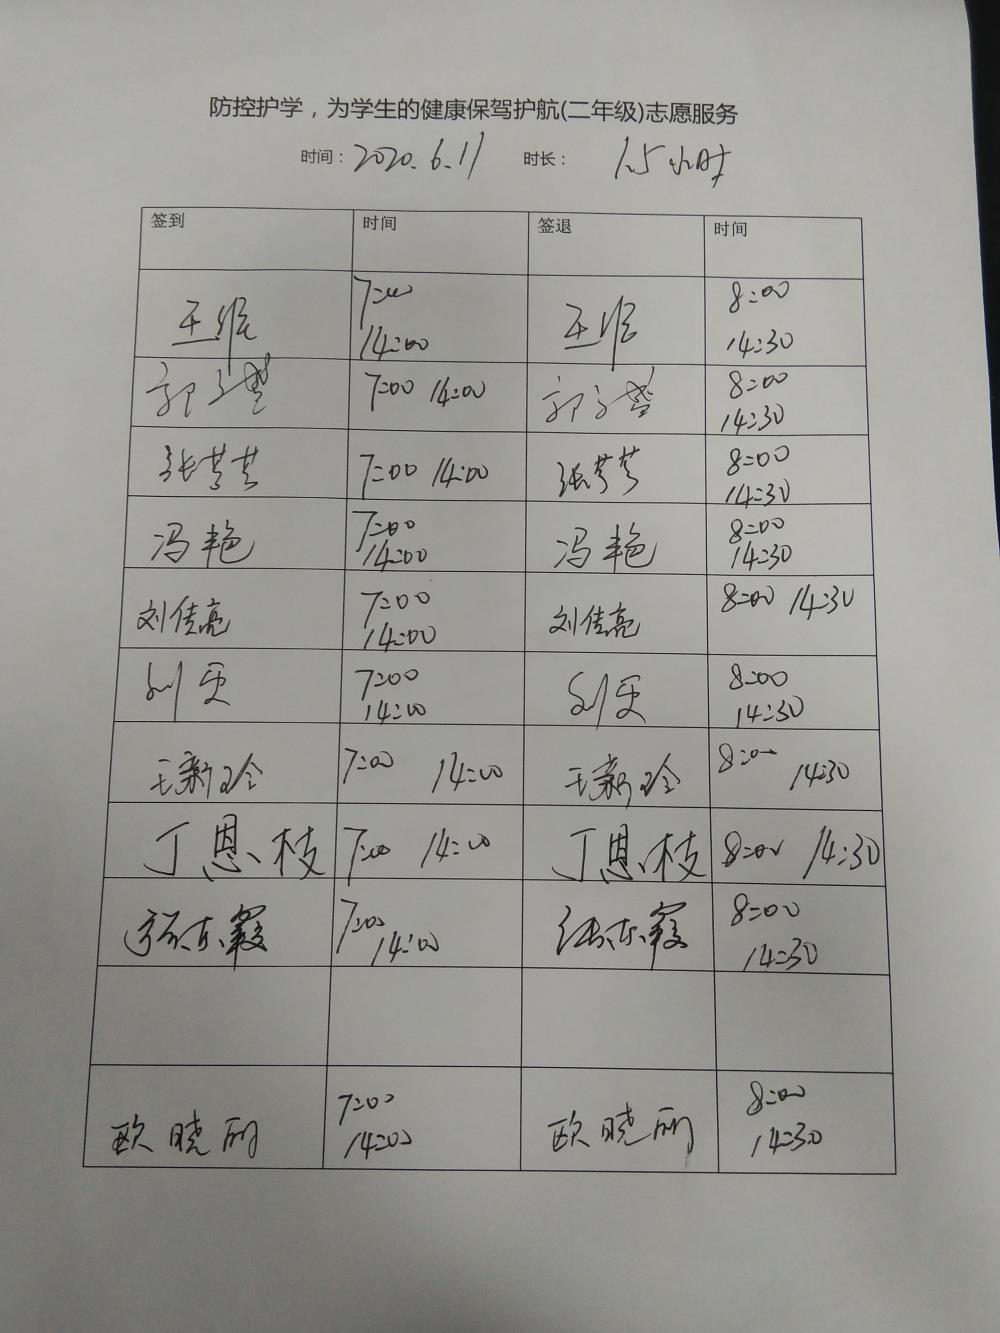 防控护学，为学生的健康保驾护航(二年级)志愿服务
时间：2020.6.11 时长： 1.5小时
签到 时间 签退 时间
王维 7:00 14:00 王维 8:00 14:30
郭 7:00 14:00 郭 8:00 14:30
张 7:00 14:00 张 8:00 14:30
冯艳 7:00 14:00 冯艳 8:00 14:30
刘佳亮 7:00 14:00 刘佳亮 8:00 14:30
刘更 7:00 14:00 刘更 8:00 14:30
王新玲 7:00 14:00 王新玲 8:00 14:30
丁恩枝 7:00 14:00 丁恩枝 8:00 14:30
张东霞 7:00 14:00 张东霞 8:00 14:30
欧晓丽 7:00 14:00 欧晓丽 8:00 14:30